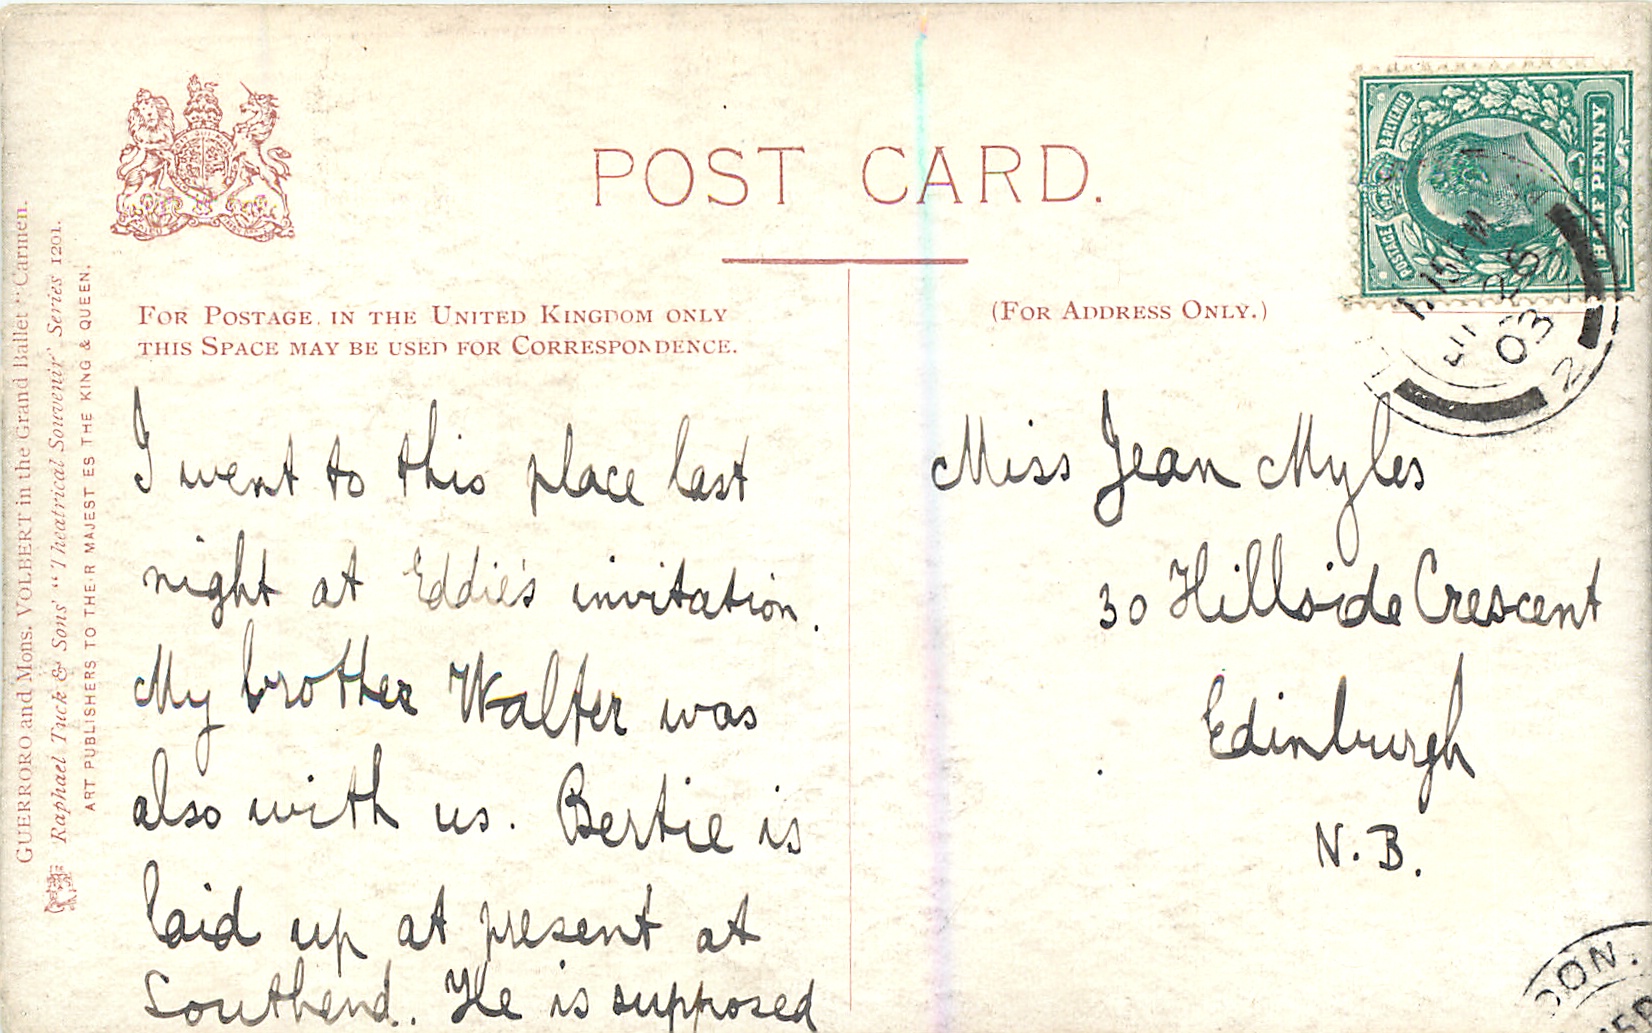 POST CARD.
FOR POSTAGE IN THE UNITED KINGDOM ONLY
THIS SPACE MAY BE USED FOR CORRESPONDENCE.
(FOR ADDRESS ONLY.)
I went to this place last
night at Eddie's invitation.
My brother Walter was
also with us. Bertie is
laid up at present at
Southend. He is supposed
Miss Jean Myles
30 Hillside Crescent
Edinburgh
N.B.
GUERRORO and Mons. VOLBERT in the Grand Ballet "Carmen.
Raphael Tuck & Sons' "Theatrical Souvenir" Series 1201.
ART PUBLISHERS TO THEIR MAJESTIES THE KING & QUEEN.
POSTAGE & REVENUE
HALF PENNY
11.15 AM
26
03
2
DON.